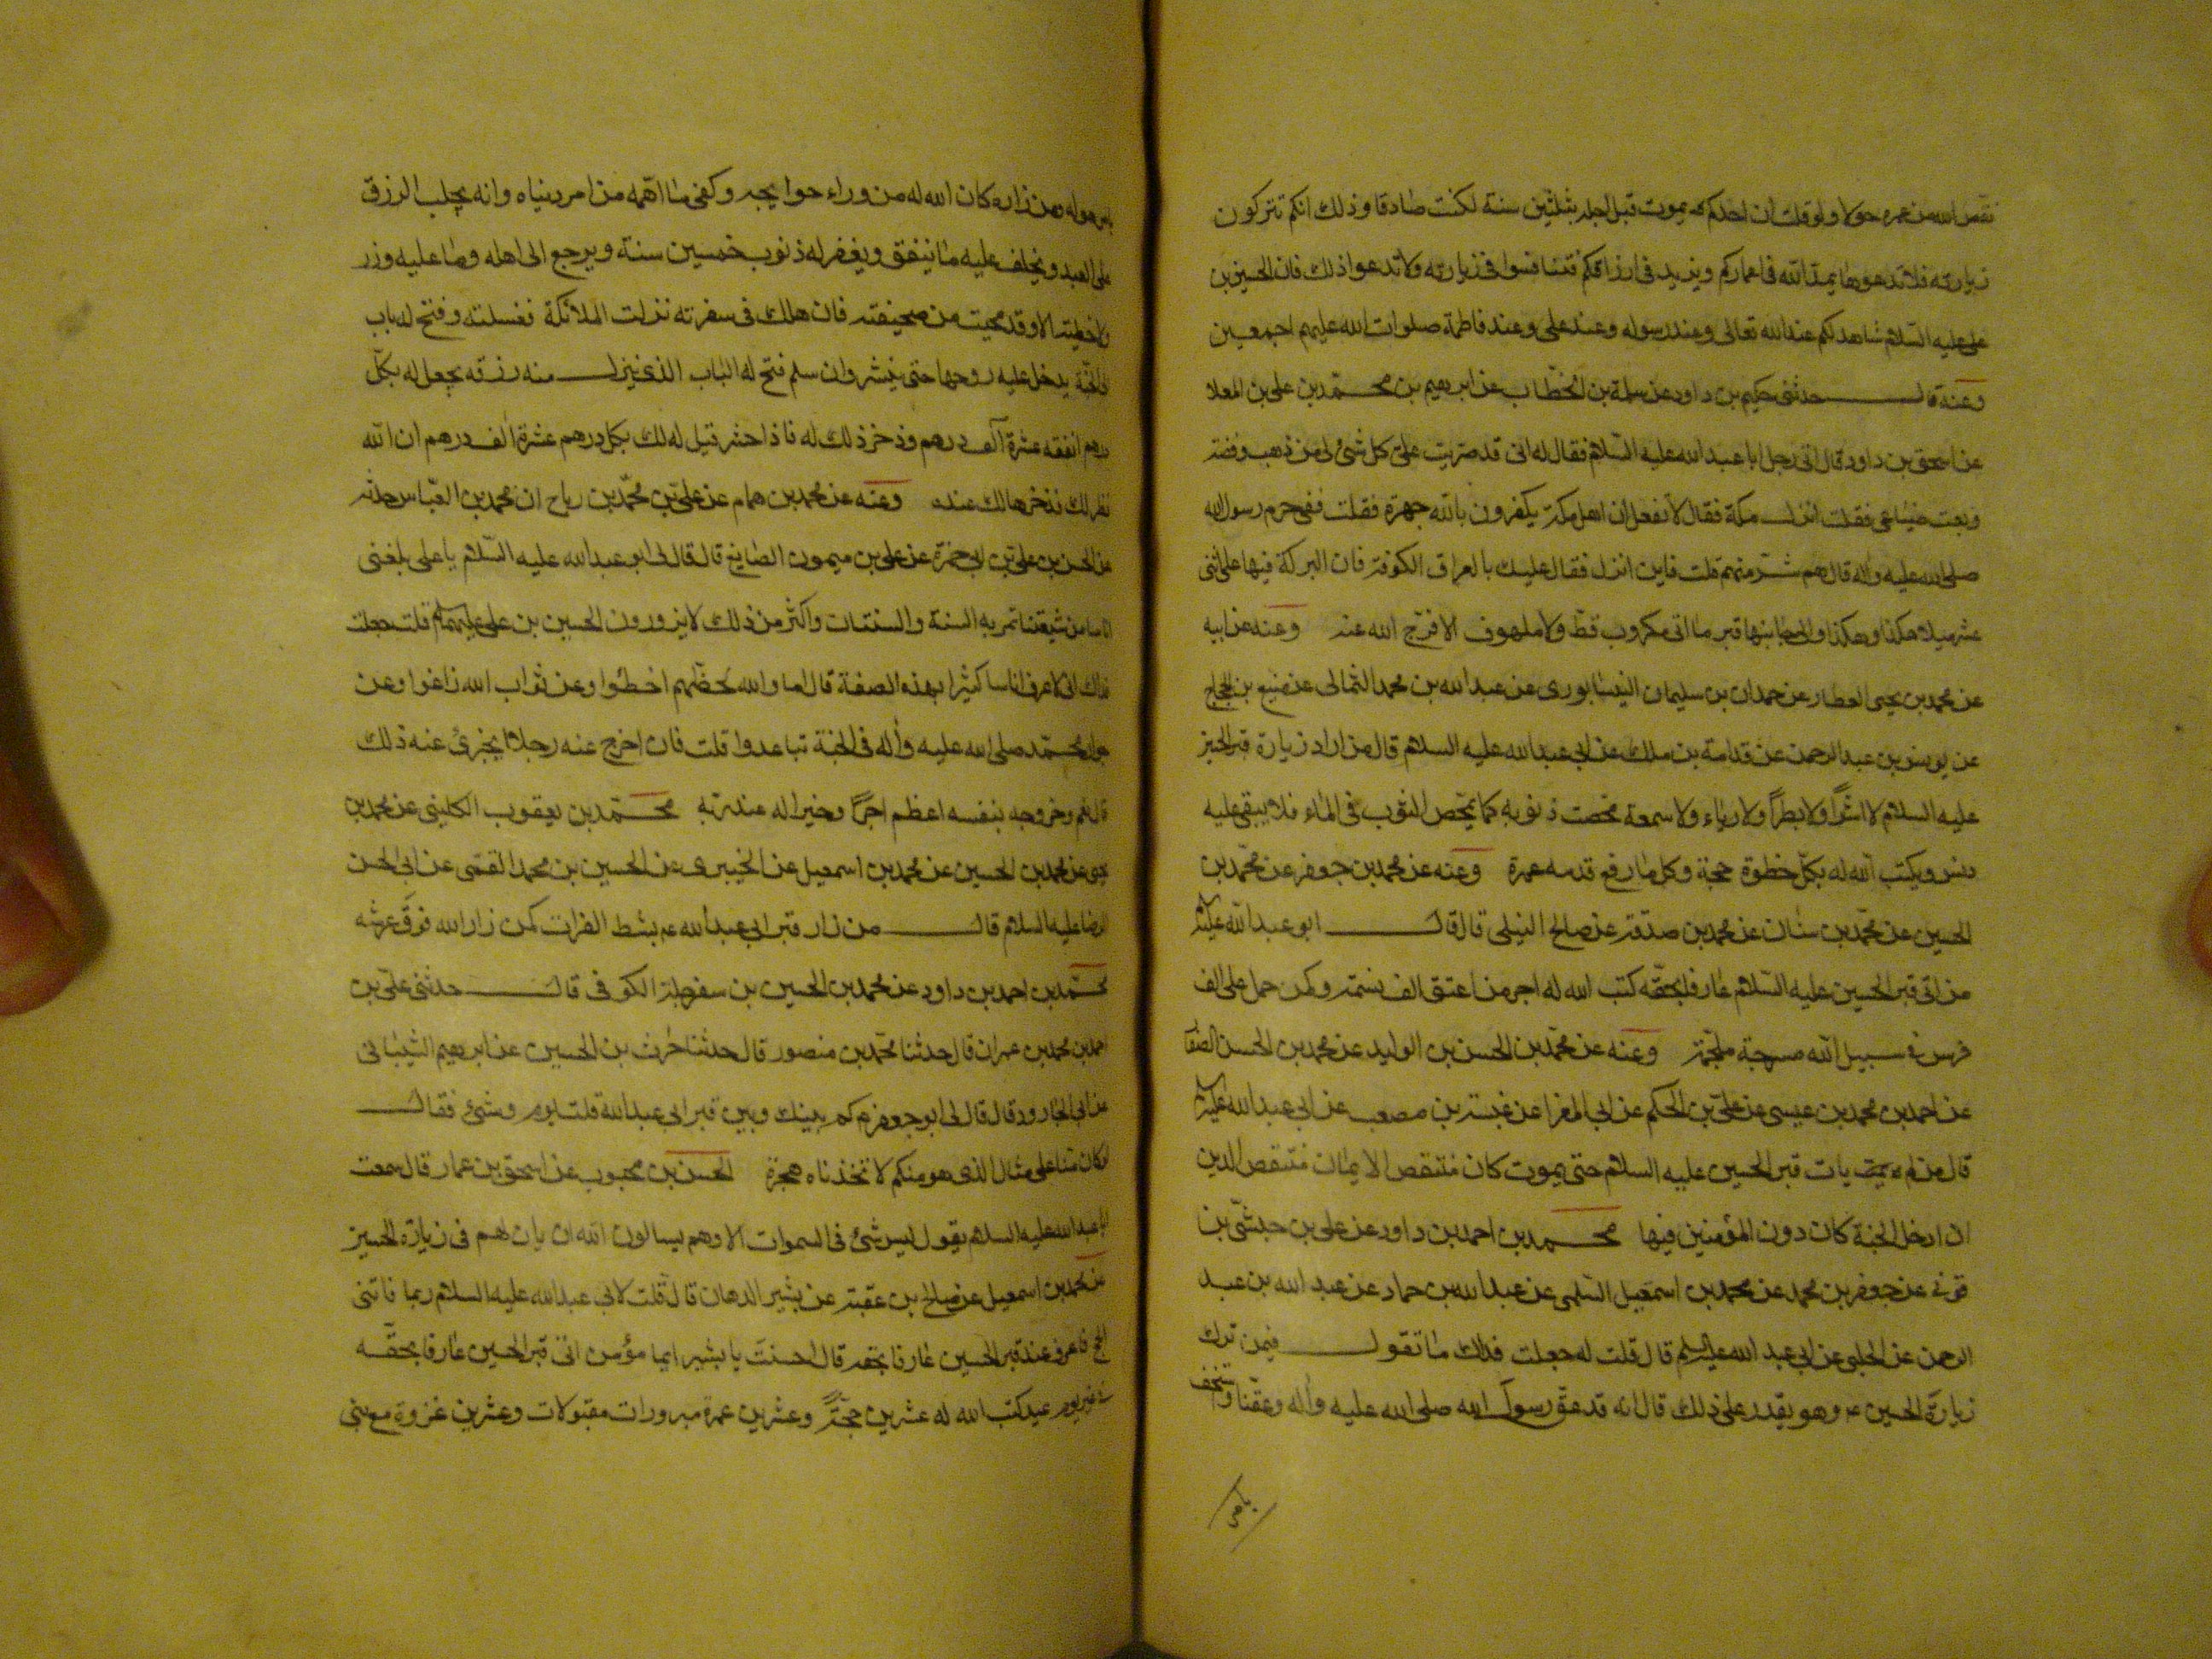 نقص الله من عمره حولا ولو قلت ان احدكم يموت قبل اجله بثلثين سنة لكنت صادقا وذلك انكم تتركون
زيارته فلا تدعوها يمد الله في اعماركم ويزيد في ارزاقكم فتنافسوا في زيارته ولا تدعوا ذلك فان الحسين بن
علي عليه السلام شاهد لكم عند الله تعالى وعند رسوله وعند علي وعند فاطمة صلوات الله عليهم اجمعين
وعنه قال حدثني حكيم بن داود عن سلمة بن الخطاب عن ابرهيم بن محمد بن علي بن المعلا
عن اسحق بن داود قال اتى رجل ابا عبد الله عليه السلام فقال له اني قد ضربت على كل شئ لي من ذهب وفضة
وبعت ضياعي فقلت انزل مكة فقال لا تفعل ان اهل مكة يكفرون بالله جهرة فقلت ففي حرم رسول الله
صلى الله عليه واله قال هم شر منهم قلت فاين انزل فقال عليك بالعراق الكوفة فان البركة فيها على اثني
عشر ميلا هكذا وهكذا والى جانبها قبر ما اتى مكروب قط ولا ملهوف الا فرج الله عنه وعنه عن ابيه
عن محمد بن يحيى العطار عن حمدان بن سليمان النيسابوري عن عبد الله بن محمد الثمالي عن منيع بن الحجاج
عن يونس بن عبد الرحمن عن قدامة بن ملك عن ابي عبد الله عليه السلام قال من اراد زيارة قبر الحسين
عليه السلام لا اشرا ولا بطرا ولا رياء ولا سمعة محصت ذنوبه كما يمحص الثوب في الماء فلا يبقى عليه
دنس ويكتب الله له بكل خطوة حجة وكل ما رفع قدمه عمرة وعنه عن محمد بن جعفر عن محمد بن
الحسين عن محمد بن سنان عن محمد بن صدقة عن صالح النيلي قال قال ابو عبد الله عليه
من اتى قبر الحسين عليه السلام عارفا بحقه كتب الله له اجر من اعتق الف نسمة وكمن حمل على الف
فرس في سبيل الله مسرجة ملجمة وعنه عن محمد بن الحسن بن الوليد عن محمد بن الحسن الصفار
عن احمد بن محمد بن عيسى عن علي بن الحكم عن ابي المغرا عن عنبسة بن مصعب عن ابي عبد الله عليه
قال من لم يات قبر الحسين عليه السلام حتى يموت كان منتقص الايمان منتقص الدين
ان ادخل الجنة كان دون المؤمنين فيها محمد بن احمد بن داود عن علي بن حبشي بن
قوني عن جعفر بن محمد عن محمد بن اسمعيل السلمي عن عبد الله بن حماد عن عبد الله بن عبد
الرحمن عن الحلبي عن ابي عبد الله عليه السلم قال قلت له جعلت فداك ما تقول فيمن ترك
زيارة الحسين ع وهو يقدر على ذلك قال انه قد عق رسول الله صلى الله عليه واله وعقنا واستخف
بامر هو له ومن زاره كان الله له من وراء حوايجه وكفى ما اهمه من امر دنياه وانه يجلب الرزق
على العبد ويخلف عليه ما ينفق ويغفر له ذنوب خمسين سنة ويرجع الى اهله وما عليه وزر
ولا خطيئة الا وقد محيت من صحيفته فان هلك في سفرته نزلت الملائكة فغسلته وفتح له باب
الى الجنة يدخل عليه روحها حتى ينشر وان سلم فتح له الباب الذي ينزل منه رزقه يجعل له بكل
درهم انفقه عشرة الف درهم وذخر ذلك له فاذا حشر قيل له لك بكل درهم عشرة الف درهم ان الله
نظر لك فذخرها لك عنده وعنه عن محمد بن همام عن علي بن محمد بن رباح ان محمد بن العباس حدثه
عن الحسن بن علي بن ابي حمزة عن علي بن ميمون الصايغ قال قال لي ابو عبد الله عليه السلام يا علي بلغني
اناسا من شيعتنا تمر به السنة والسنتان واكثر من ذلك لا يزورون الحسين بن علي عليهما السلم قلت جعلت
فداك اني لاعرف اناسا كثيرا بهذه الصفة قال اما والله لحظهم اخطئوا وعن ثواب الله زاغوا وعن
جوار محمد صلى الله عليه واله في الجنة تباعدوا قلت فان اخرج عنه رجلا ايجزئ عنه ذلك
قال نعم وخروجه بنفسه اعظم اجرا وخيرا له عند ربه محمد بن يعقوب الكليني عن محمد بن
يحيى عن محمد بن الحسين عن محمد بن اسمعيل عن الخيبري عن الحسين بن محمد القمي عن ابي الحسن
الرضا عليه السلام قال من زار قبر ابي عبد الله ع بشط الفرات كمن زار الله فوق عرشه
محمد بن احمد بن داود عن محمد بن الحسين بن سفرجلة الكوفي قال حدثني علي بن
احمد بن محمد بن عمران قال حدثنا محمد بن منصور قال حدثنا حرث بن الحسين عن ابرهيم الشيباني
عن ابي الجارود قال قال لي ابو جعفر ع كم بينك وبين قبر ابي عبد الله قلت يوم وشئ فقال
لو كان منا على مثال الذي هو منكم لاتخذناه هجرة الحسن بن محبوب عن اسحق بن عمار قال سمعت
ابا عبد الله عليه السلام يقول ليس شئ في السموات الا وهم يسالون الله ان ياذن لهم في زيارة الحسين
عن محمد بن اسمعيل عن صالح بن عقبة عن بشير الدهان قال قلت لابي عبد الله عليه السلام ربما فاتني
الحج فاعرف عند قبر الحسين عارفا بحقه قال احسنت يا بشير ايما مؤمن اتى قبر الحسين عارفا بحقه
في غير يوم عيد كتب الله له عشرين حجة وعشرين عمرة مبرورات مقبولات وعشرين غزوة مع نبي